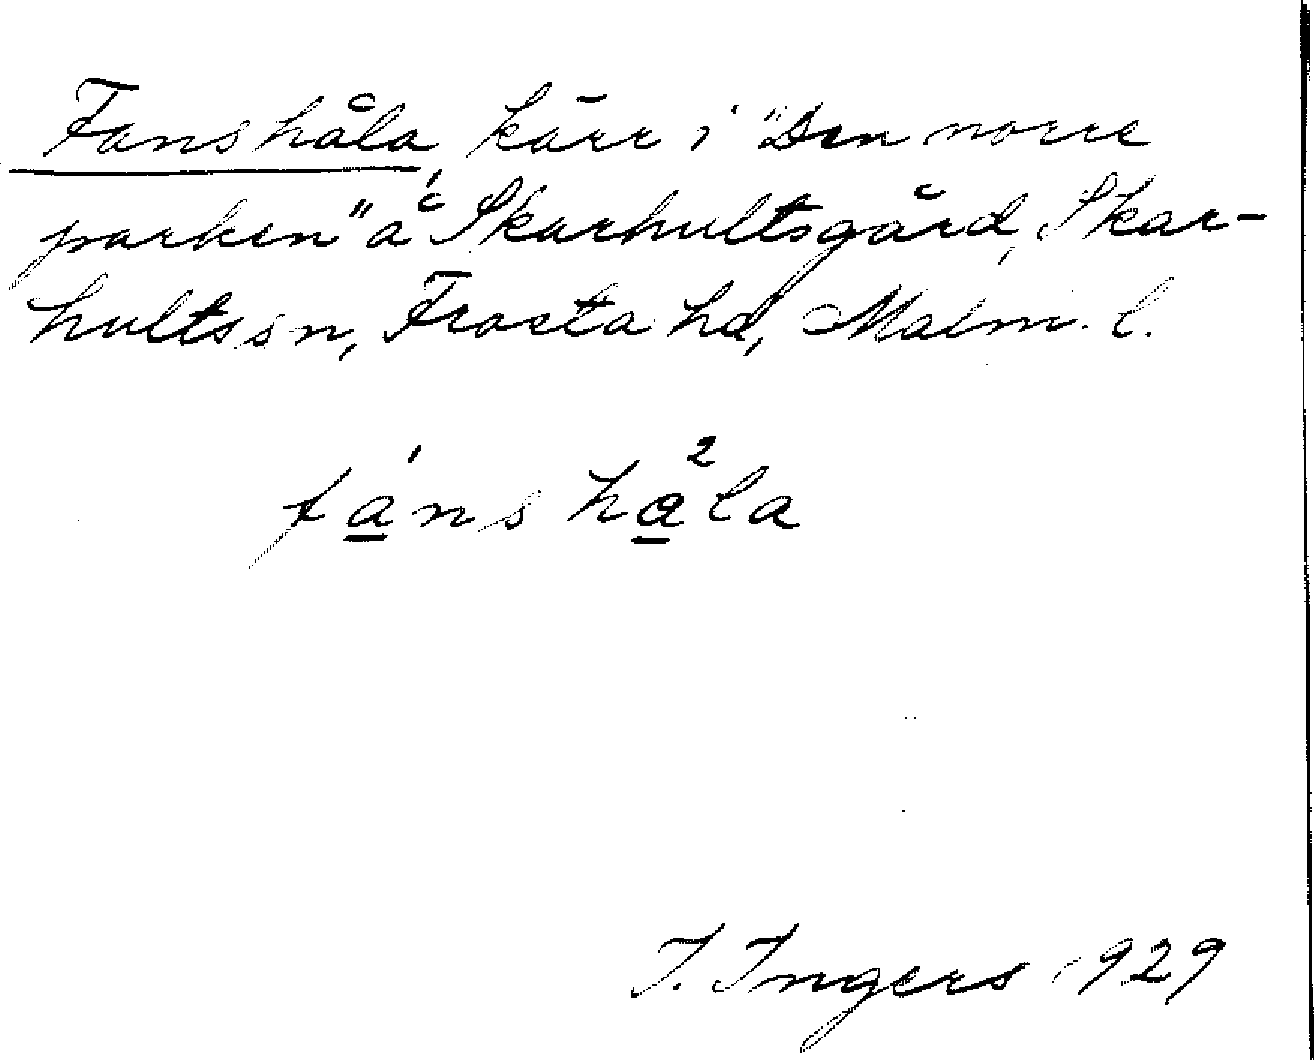 Fanshåla, kärr i "Den norre
parken" å Skarhultsgård, Skar-
hults sn, Frosta hd, Malm. l.
fáns hå²la
I. Ingers 1929